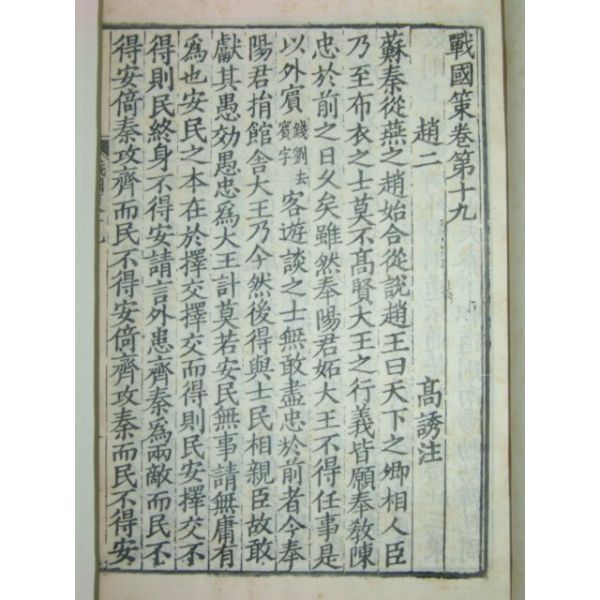 戰國策卷第十九
趙二 高誘注
蘇秦從燕之趙始合從說趙王曰天下之卿相人臣
乃至布衣之士莫不髙賢大王之行義皆願奉敎陳
忠於前之日久矣雖然奉陽君妬大王不得任事是
以外賔錢劉去賔字客遊談之士無敢盡忠於前者今奉
陽君捐館舎大王乃今然後得與士民相親臣故敢
獻其愚効愚忠爲大王計莫若安民無事請無庸有
爲也安民之本在於擇交擇交而得則民安擇交不
得則民終身不得安請言外患齊秦爲兩敵而民不
得安倚秦攻齊而民不得安倚齊攻秦而民不得安